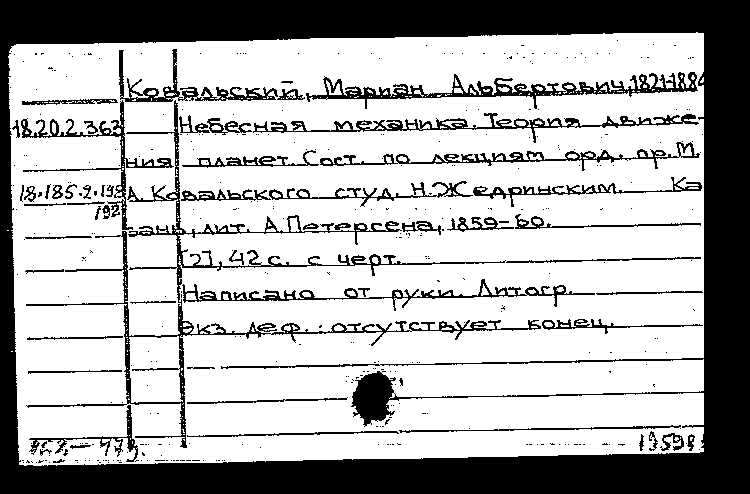 Ковальский, Мариан Альбертович, 1821-1884
18.20.2.363 Небесная механика. Теория движе-
ния планет. Сост. по лекциям орд. пр. М.
18.185.2.198 А. Ковальского студ. Н. Жедринским. Ка
192 зань, лит. А. Петерсена, 1859-60.
[2], 42 с. с черт.
Написано от руки. Литогр.
Экз. деф.: отсутствует конец.